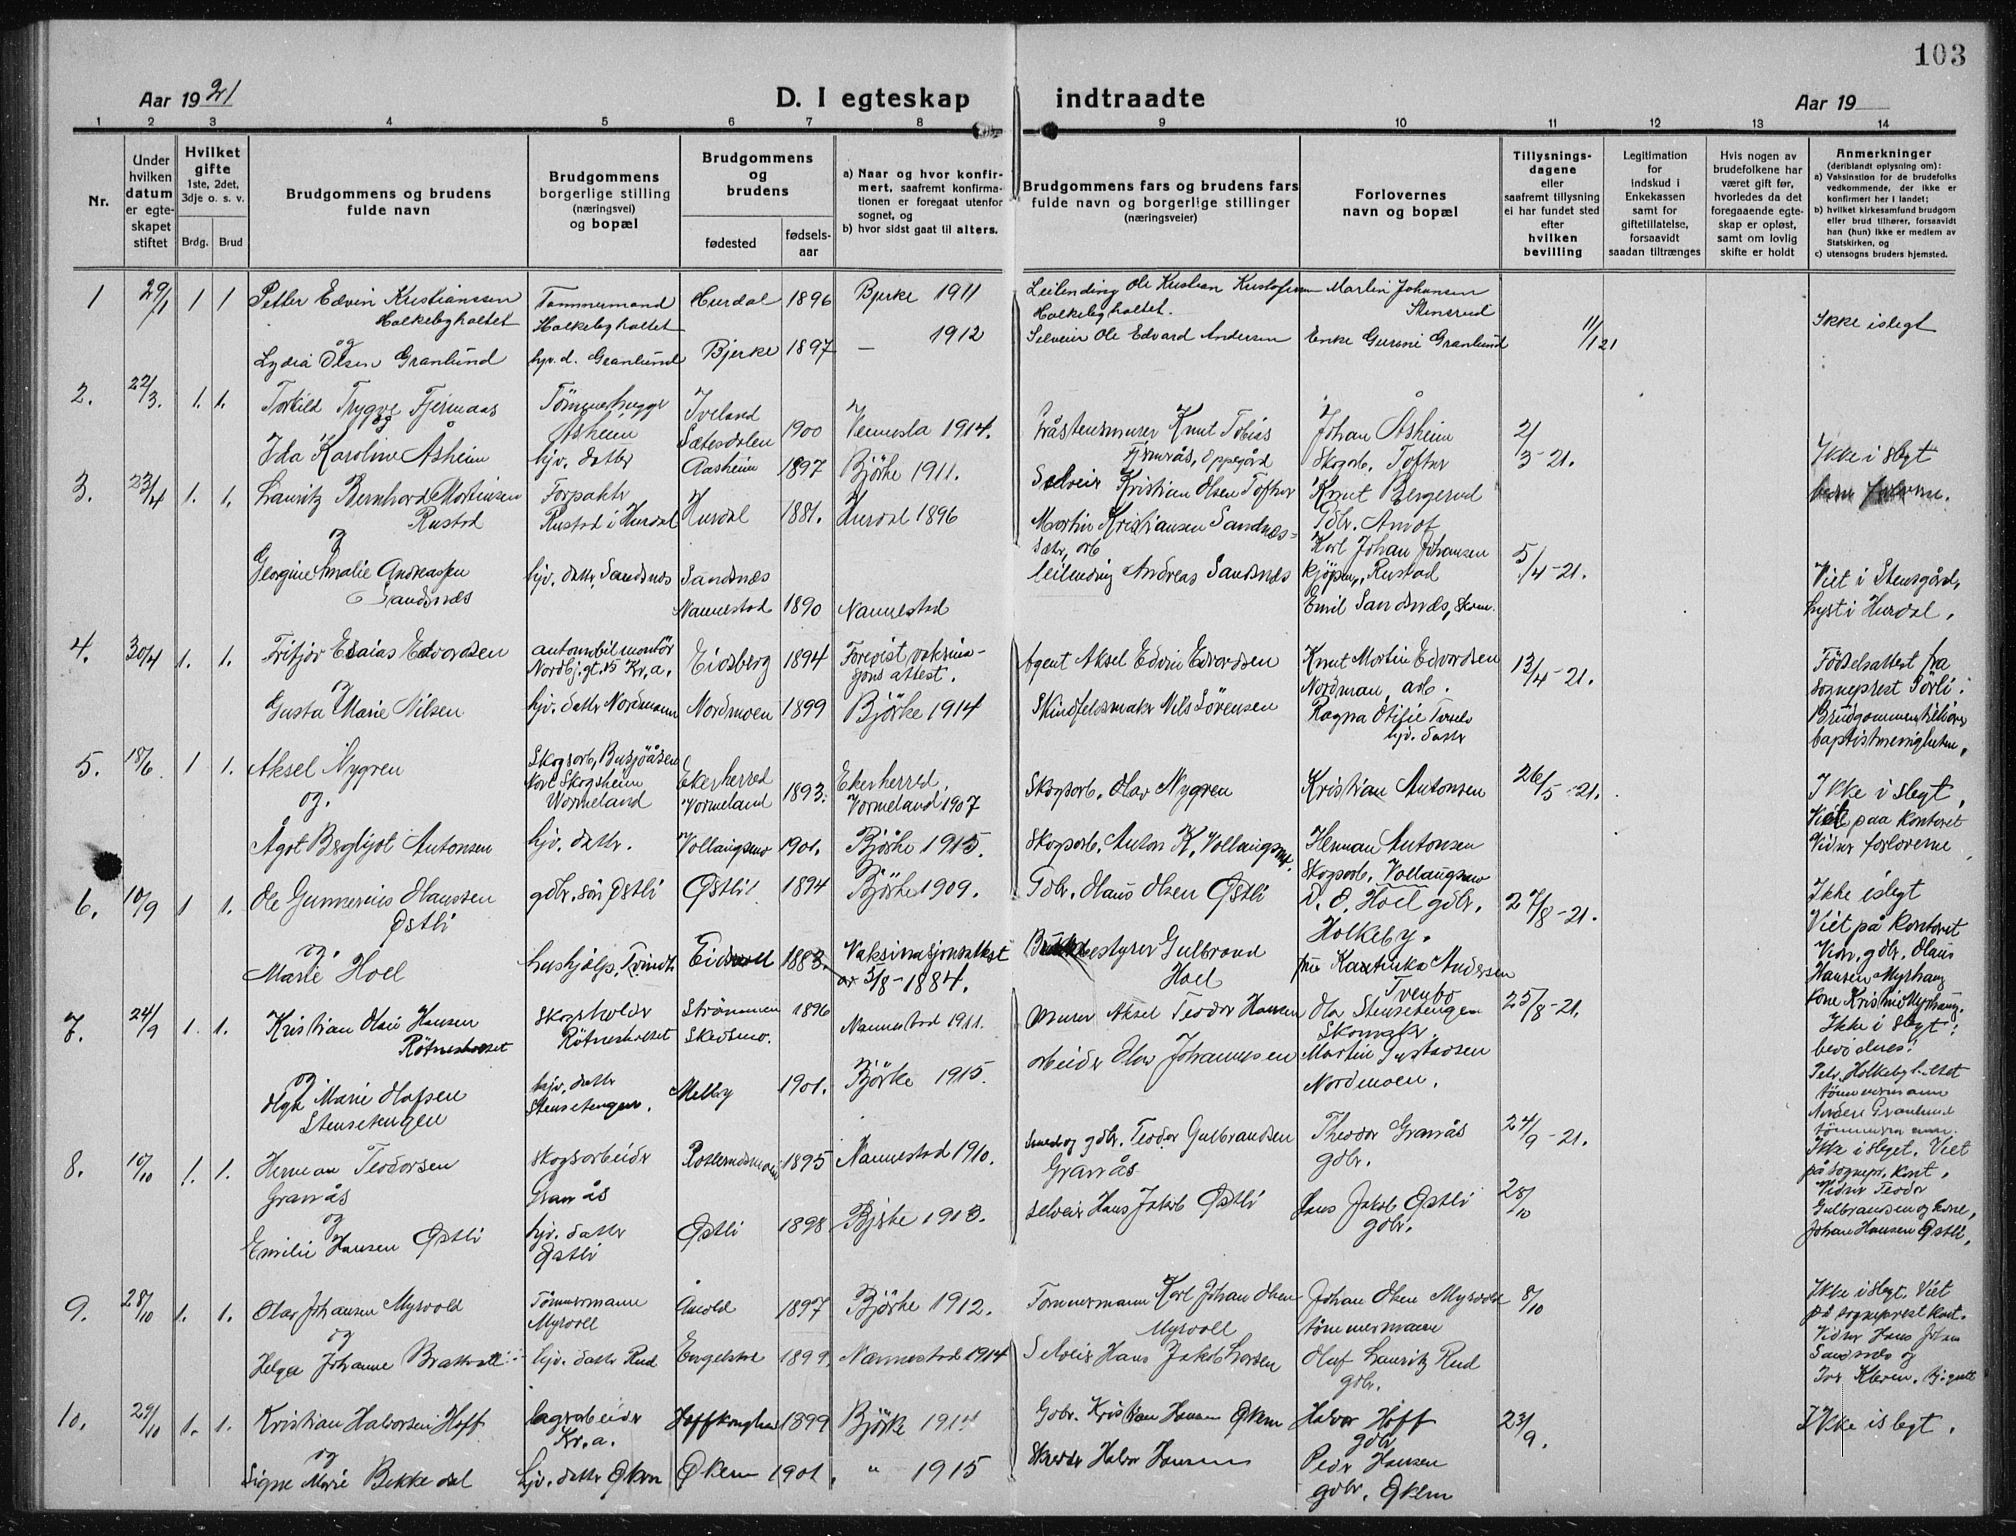 103
Aar 1921
D. I egteskap indtraadte
Aar 19
1 2 3 4 5 6 7 8 9 10 11 12 13 14
Nr.
Under
hvilken
datum
er egte-
skapet
stiftet
Hvilket
gifte
1ste, 2det,
3dje o. s. v.
Brdg. Brud
Brudgommens og brudens
fulde navn
Brudgommens
borgerlige stilling
(næringsvei)
og bopæl
Brudgommens
og
brudens
fødested
fødsels-
aar
a) Naar og hvor konfir-
mert, saafremt konfirma-
tionen er foregaat utenfor
sognet, og
b) hvor sidst gaat til alters.
Brudgommens fars og brudens fars
fulde navn og borgerlige stillinger
(næringsveier)
Forlovernes
navn og bopæl
Tillysnings-
dagene
eller
saafremt tillysning
ei har fundet sted
efter
hvilken
bevilling
Legitimation
for
indskud i
Enkekassen
samt for
giftetillatelse,
forsaavidt
saadan tiltrænges
Hvis nogen av
brudefolkene har
været gift før,
hvorledes da det
foregaaende egte-
skap er opløst,
samt om lovlig
skifte er holdt
Anmerkninger
(deriblandt oplysning om):
a) Vaksination for de brudefolks
vedkommende, der ikke er
konfirmert her i landet;
b) hvilket kirkesamfund brudgom
eller brud tilhører, forsaavidt
han (hun) ikke er medlem av
Statskirken, og
c) utensogns bruders hjemsted.
1 29/1 1 1 Petter Edvin Kristianssen
Holkebyhaltet
og
Lydia Olsen Granlund
Tømmermand
Holkebyhaltet
hjv. d. Granlund
Hurdal 1896 Bjerke 1911
Bjerke 1897 — 1912
Leilending Ole Kristian Kristofersen
Holkebyhaltet.
Selveier Ole Edvard Andersen
Martin Johansen
Stensrud
Enke Gurine Granlund
11/1 21
Ikke i slegt
2. 22/3. 1. 1. Torkild Trygve Fjermaas
og
Ida Karoline Åsheim
Tömmerhugger
Åsheim
hjv. datter
Iveland
Sætesdalen 1900 Vennesla 1914.
Aasheim 1897 Björke 1911.
Gråstensmurer Knut Tobias
Fjermås, Oppegård
Selveier Kristian Olsen Tofter
Johan Åsheim
Skogsarb. Tofter
Knut Bergerud
Gdbr. Amot
2/3-21.
Ikke i slegt
3. 23/4 1. 1. Lauritz Bernhard Martinsen
Rustad
og
Georgine Amalie Andreassen
Sandsnæs
Forpakter
Rustad i Hurdal
hjv. datter, Sandsnæs
Hurdal 1881. Hurdal 1896
Sandsnæs
Nannestad 1890 Nannestad
Martin Kristiansen Sandnes-
sæter, arb
leilending Andreas Sandsnæs
Karl Johan Johansen
kjöpm., Rustad
Emil Sandsnæs, skom.
5/4-21.
Viet i Stensgård,
Lyst i Hurdal.
4. 30/4 1. 1. Fritjov Esaias Edvardsen
og
Gusta Marie Nilsen
automobilmontör
Nordbj.gt. 15 Kr.a.
hjv. datter Nordmoen
Eidsberg 1894 Forevist vaksina-
sjonsattest.
Nordmoen 1899 Björke 1914
Agent Aksel Edvin Edvardsen
Skindfeldmaker Nils Sörensen
Knut Martin Edvardsen
Nordman, arb.
Ragna Otilie
hjv. datter
13/4-21.
Födselsattest fra
sogneprest Sörli.
Brudgommen tilhörer
baptistmenigheten.
5. 18/6 1 1. Aksel Nygren
og.
Ågot Bergljot Antonsen
Skogsarb., Busjöåsen
Nore Skogsheim
Wermeland
hjv. datter.
Ekerherred
Vermeland 1893. Ekerherred,
Vermeland 1907
Vollaugmo 1901. Björke 1915.
Skogsarb. Olav Nygren
Skogsarb. Anton K. Vollaugmo
Kristian Antonsen
Herman Antonsen
Skogsarb. Vollaugmo
26/5-21.
Ikke i slegt.
Viet paa kontoret
Vidner forloverne
6. 10/9 1 1. Ole Gunnerius Hanssen
Østli
og.
Marie Hoel
gdbr. sön Østli
hushjelp,
Østli 1894 Björke 1909.
Eidsvoll 1883. Vaksinasjonsattest
av 5/8-1884.
Gdbr. Hans Olsen Østli
bestyrer Gulbrand
Hoel
D. O. Hoel gdbr.
Holkeby.
fru Katinka Andersen
Tvenbo
27/8-21.
Ikke i slegt
Viet på kontoret
Vidn. gdbr. Olaus
Hansen Myrhaug
kone Kristine Myrhaug.
7. 24/9 1. 1. Kristian Olai Hansen
Rötnesholset
og
Olga Marie Olafsen
Stensetengen
Skogsholder
Rötnesholset
hjv. datter
Stensetengen.
Strömmen 1896
Skedsmo. Nannestad 1911.
Melby 1901. Björke 1915.
murer Aksel Teodor Hansen
arbeider Olav Johannesen
Ola Stensetengen
Skomaker
Martin Gustavsen
Nordmoen.
25/8-21.
Ikke i slegt:
bevidnes:
Peter Holkebyhaltet
tömmermann
Anders Granlund
tömmermann.
8. 10/10 1. 1. Herman Teodorsen
Granås
og
Emilie Hansen Østli
skogsarbeider
Granås
hjv. datter
Østli
1895 Nannestad 1910.
Østli 1898 Björke 1913.
Smed og gdbr. Teodor Gulbrandsen
Granås
selveier Hans Jakob Østli
Theodor Granås
gdbr.
Hans Jakob Østli
gdbr.
24/9-21.
28/10
Ikke i slegt. Viet
på sognepr. kont.
Vidner Teodor
Gulbrandsen og kone,
Johan Hansen Østli.
9. 28/10 1. 1. Olav Johansen Myrvold
og
Helga Johanne Bratvoll
Tömmermann
Myrvoll
hjv. datter Rud
Åmold 1897 Björke 1912.
Engelstad 1899. Nannestad 1914
Tommermann Karl Johan Olsen
Myrvoll
Selveier Hans Jakob Larsen
Johan Olsen Myrvold
tömmermann
Oluf Lauritz Rud
gdbr.
8/10
Ikke i slegt. Viet
på sogneprest kont.
Vidner Hans Johan
Sandsnæs og
Ivar Kleven.
10. 29/10 1. 1. Kristian Halvorsen Hoff
og
Signe Marie Bekkedal
lagerarbeider
Kr.a.
hjv. datter Økern
1899 Björke 1914
Økern 1901. " 1915
Gdbr. Kristian Hansen Økern
Skredder Halvor Hansen
Halvor Hoff
gdbr
Peder Hansen
gdbr. Økern
23/9.
Ikke i slegt.